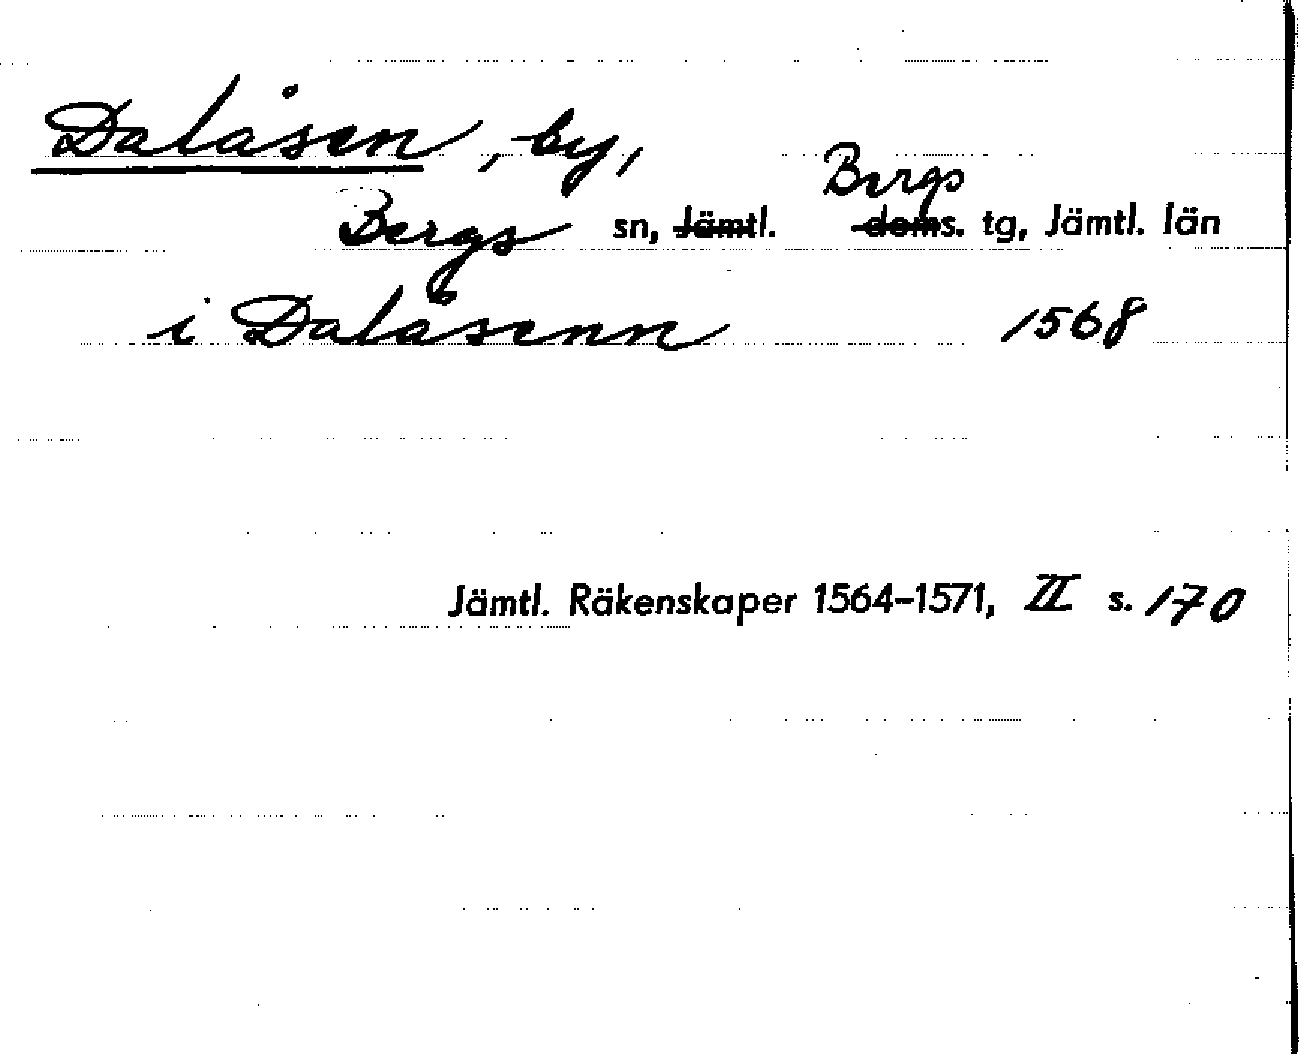 Dalåsen, by,
Bergs
Bergs sn, Jämtl. doms. tg, Jämtl. län
i Dalåsenn 1568
Jämtl. Räkenskaper 1564-1571, II s. 170